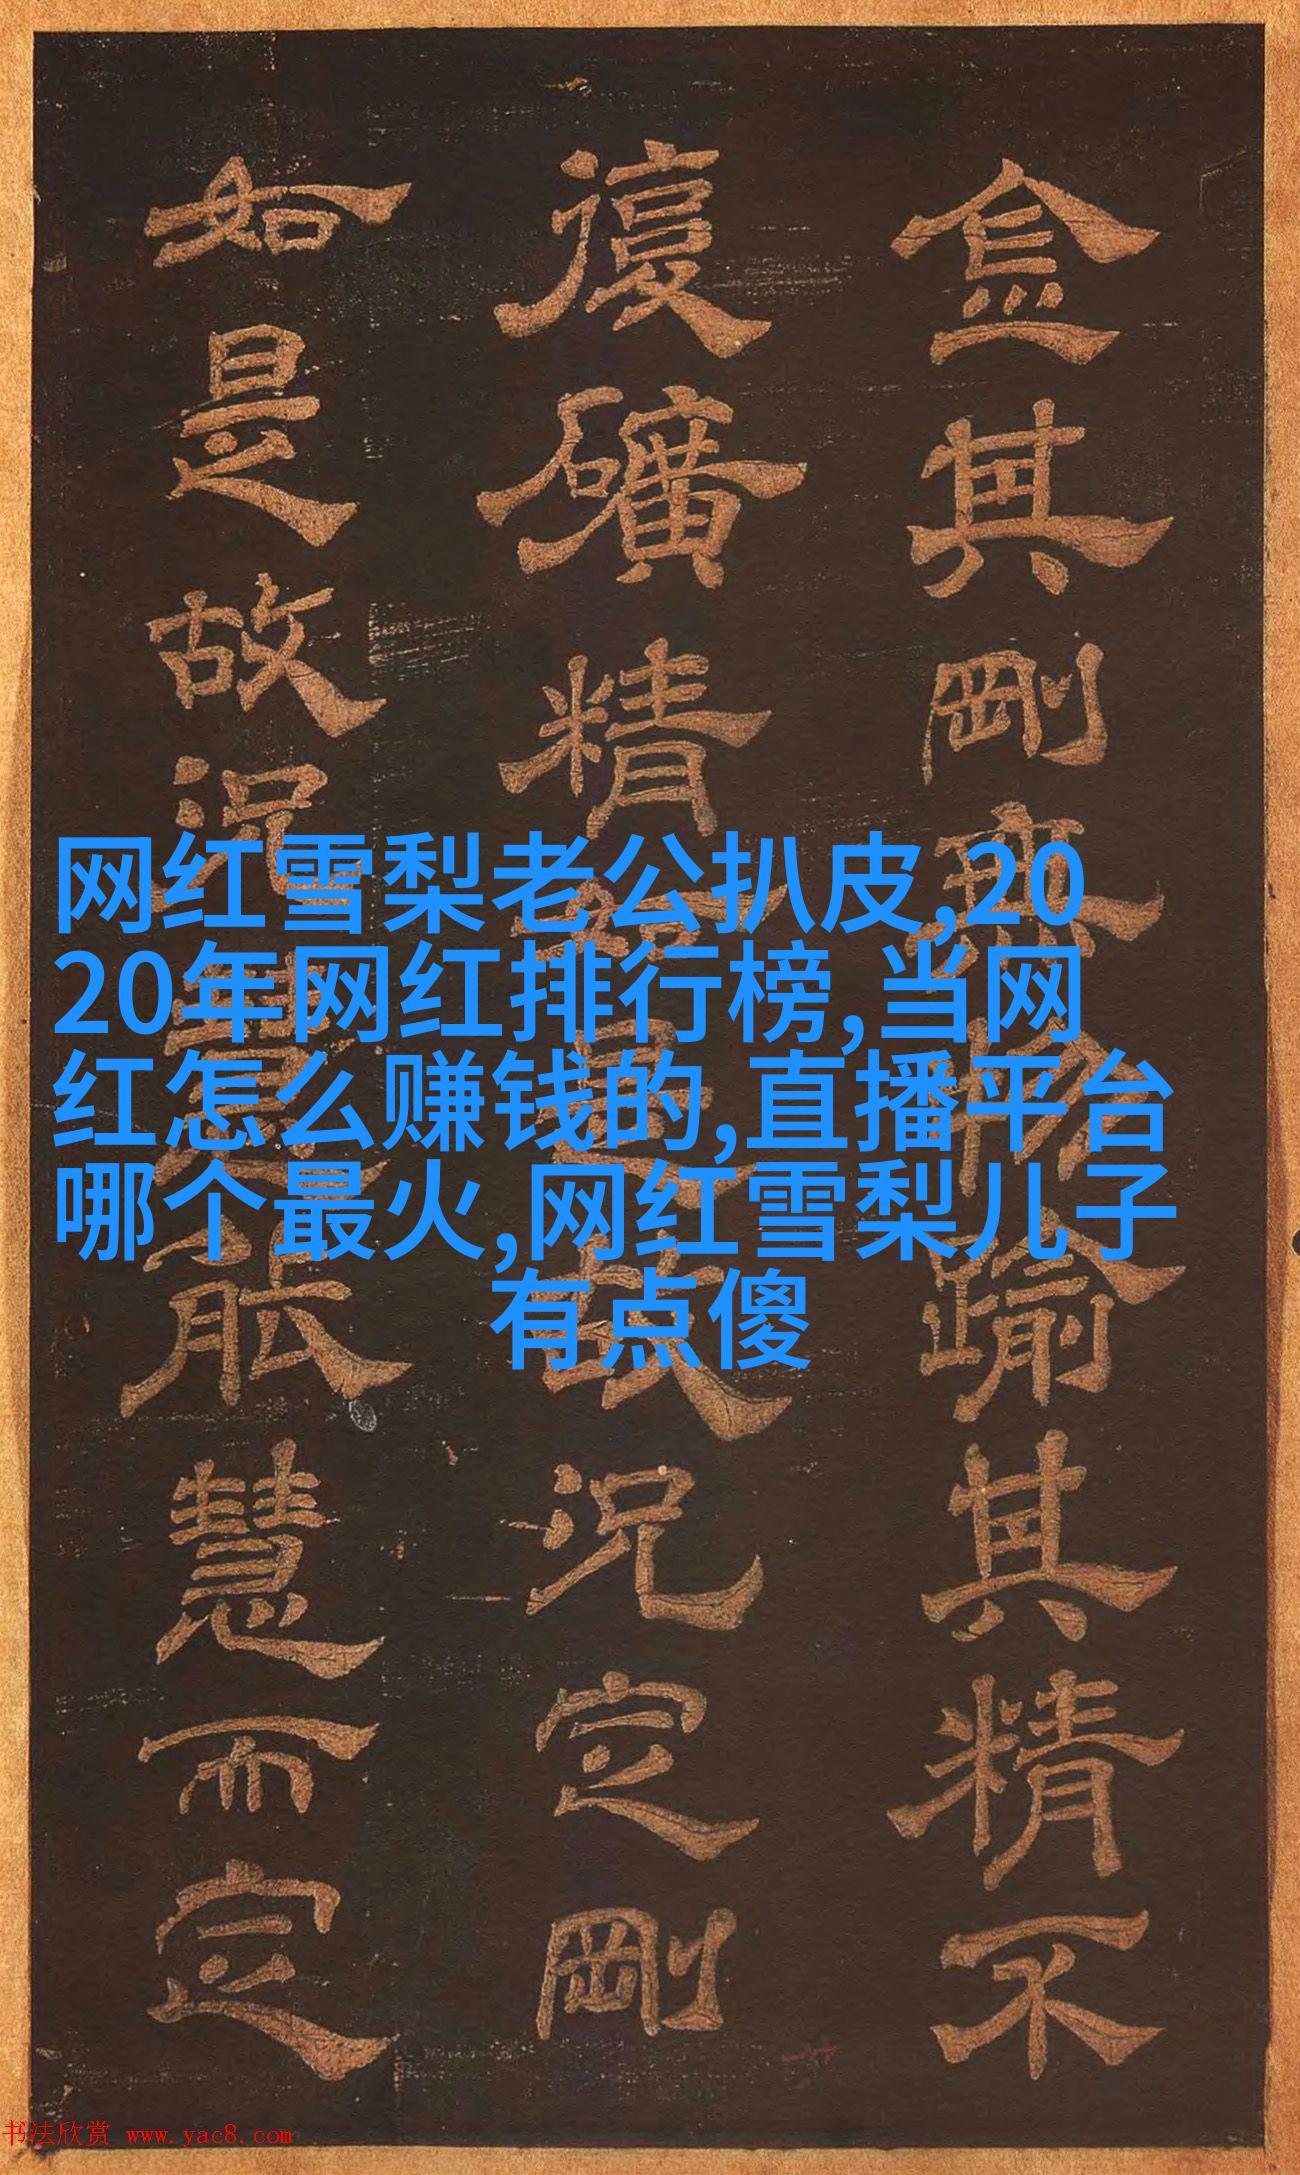 金其剛無物踰其精不
復礦精是故況定剛
如是故況能慧而定
网红雪梨老公扒皮,20
20年网红排行榜,当网
红怎么赚钱的,直播平台
哪个最火,网红雪梨儿子
有点傻
书法欣赏 www.yac8.com